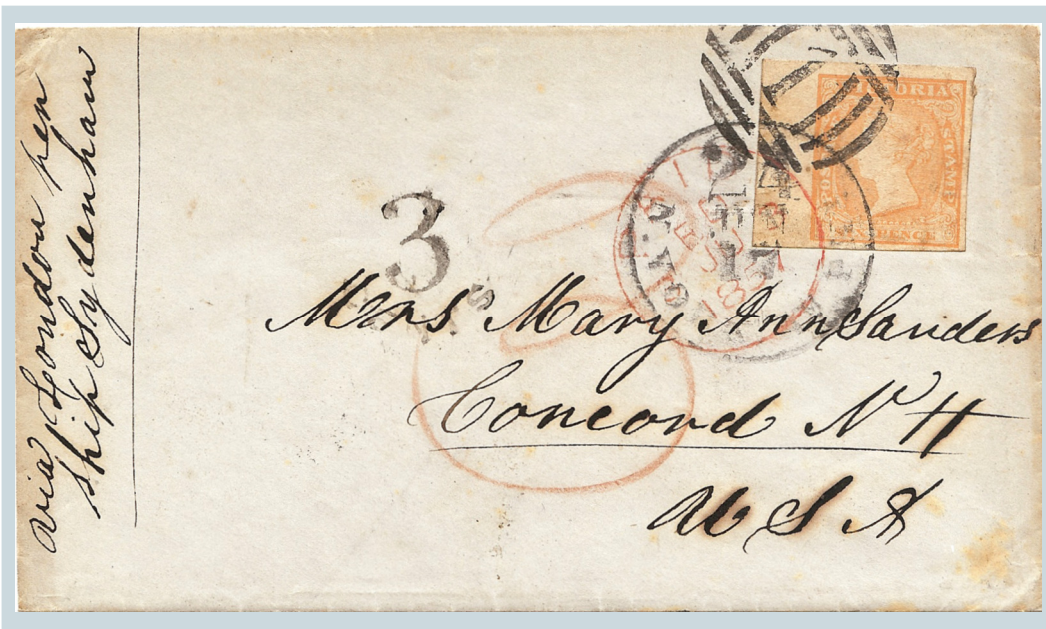 via London per
ship Sydenham
VICTORIA
STAMP
3
Mrs Mary Ann Sanders
Concord N H
U S A